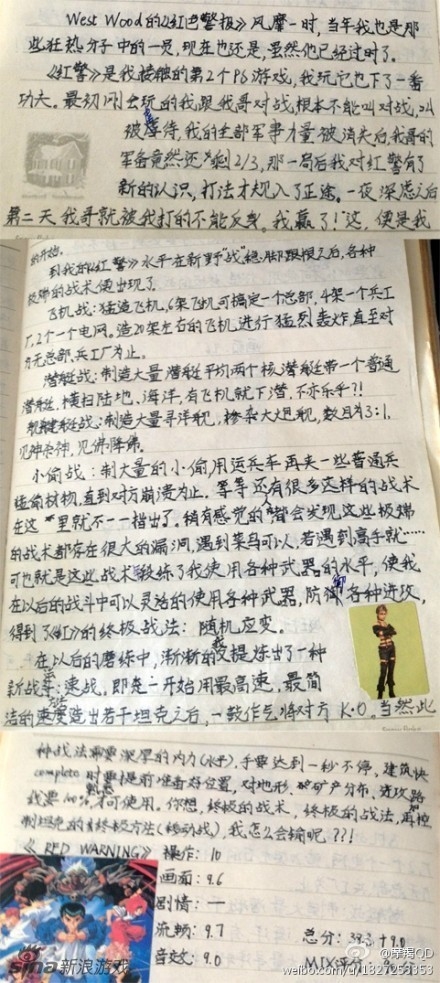 West Wood的《红色警报》风靡一时,当年我也是那
些狂热分子中的一员,现在也还是,虽然他已经过时了。
《红警》是我接触的第2个PC游戏,我玩它也下了一番
功夫。最初刚会玩的我跟我哥对战,根本不能叫对战,叫
被虐待,我的全部军事力量被消失后,我哥的
军备竟然还剩2/3,那一局后我对红警有了
新的认识,打法才规入了正途。一夜深虑之后
第二天我哥就被我打的不能反身。我赢了!这,便是我
的开始。
到我的《红警》水平在新野“战”稳脚跟之后,各种
极端的战术便出现了。
飞机战:猛造飞机,6架飞机可搞定一个总部,4架一个兵工
厂,2个一个电网。造20架左右的飞机进行猛烈轰炸直至对
方无总部、兵工厂为止。
潜艇战:制造大量潜艇平均两个核潜艇带一个普通
潜艇,横扫陆地、海洋,有飞机就下潜,不亦乐乎?!
舰艇战:制造大量寻洋舰,掺杂大炮舰,数目为3:1,
见神杀神,见佛降佛。
小偷战:制大量的小偷用运兵车再夹一些普通兵
猛偷材物,直到对方崩溃为止。等等还有很多这样的战术
在这里就不一一指出了。稍有感觉的都会发现这些极端
的战术都存在很大的漏洞,遇到菜鸟可以,若遇到高手就……
可也就是这些战术锻练了我使用各种武器的水平,使我
在以后的战斗中可以灵活的使用各种武器,防御各种进攻,
得到了《红》的终极战法:随机应变。
在以后的磨练中,渐渐的又提炼出了一种
新战法:速战。即是一开始用最高速,最简
洁的速度造出若干坦克之后,一鼓作气将对方K·O。当然此
种战法需要深厚的内力(水平),手要达到一秒不停,建筑快
complete时要提前准备好位置,对地形,矿产分布,进攻路
线要100%熟悉才可使用。你想,终极的战术,终极的战法,再控
制坦克的终极方法(移动战),我怎么会输呢???!
《RED WARNING》 操作:10
画面:9.6
剧情:—
流畅:9.7
音效:9.0
总分:38.3+9.0
MIX评分:
sina新浪游戏
@摩羯QD